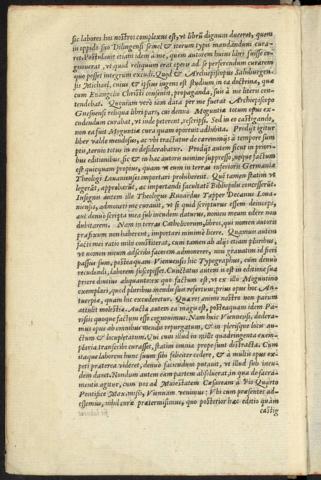 sic labores hos nostros complexus est, vt librū dignum duceret, quem
in oppido suo Dilingensi semel & iterum typis mandādum cura-
ret. Postulauit etiam ide̅ à me, quem autorem huius libri fuisse co-
gnouerat, vt quid reliquum erat operis ad se perferendum curarem
quo posset integrum excudi. Quod & Archiepiscopus Salisburgen-
sis Michael, cuius & ipsius ingens est studium in ea doctrina, quæ
cum Euangelio Christi consentit, propaganda, suis à me literis con-
tendebat. Quoniam verò iam data per me fuerat Archiepiscopo
Gnesnensi reliqua libri pars, cui denuo Moguntiæ totum opus ex-
cudendum curabat, vt inde peterent, rescripsi. Sed in eo castigando,
non ea fuit Moguntiæ cura quam oportuit adhibita. Prodijt igitur
liber valde mendosus, ac vbi tractatur de ceremonijs à tempore sum
ptis, ternio totus in eo desiderabatur. Prodijt autem sicut in priori-
bus editionibus, sic & in hac autoris nomine suppresso, idque factum
est quicquam propius, quam vt eum in terras inferioris Germaniæ
Theologi Louanienses importari prohiberent. Qui tamen statim vt
legerāt, approbarūt, ac imitandū facultate Bibliopolæ concesserūt.
Insignis autem ille Theologus Ruuardus Tapper Decanus Loua-
niensis, admoneri me curauit, vt si quid scripturus essem deinceps,
aut denuò scripta mea sub incudem daturus, nomen meum edere non
dubitarem. Nam in terras Catholicorum, libros, qui nomen autoris
præfixum non haberent, importari minimè licere. Quamuis autem
facti mei ratio mihi constiterat, cum tamen ab alijs etiam pluribus,
vt nomen meum adscriberem admonerer, meu grauatim id fieri
passus sum, posteaquam Viennensis hic Typographus, eum denuò
recudendi, laborem suscepisset. Cunctatus autem is est in editione sua
priore diutius aliquantò: ex quo factum est, vt ex illis Moguntino
exemplari, quod pluribus mendis suis refertum, prius opus hoc Ant-
uerpiæ, quam hic excuderetur. Quæ res animi nostro non parum
attulit molestiæ. Aucta autem ea magis est, posteaquam idem Pa-
risijs quoque factum esse cognouimus. Nam huic Viennensi, dedera-
mus opus ab omnibus mendis repurgatum, & in plerisque locis auc-
tum & locupletatum. Qui cum illud in mille quadringenta exem-
plaria transscribi curasset, statim omnia propè sunt distracta. Cum
itaque laborem hunc suum sibi feliciter cedere, & à multis opus ex-
peti præterea videret, denuò faciendum putauit, vt illud sub incu-
dem daret. Nondum autem eam partem absoluerat, in qua de sacra-
mentis agitur, cum nos ad Maiestatem Cæsaream à Pio Quarto
Pontifice Maximo, Viennam venimus: Vbi cum præsentes ad-
essemus, nihil curæ prætermisimus, quo posterior hæc editio quàm
castig